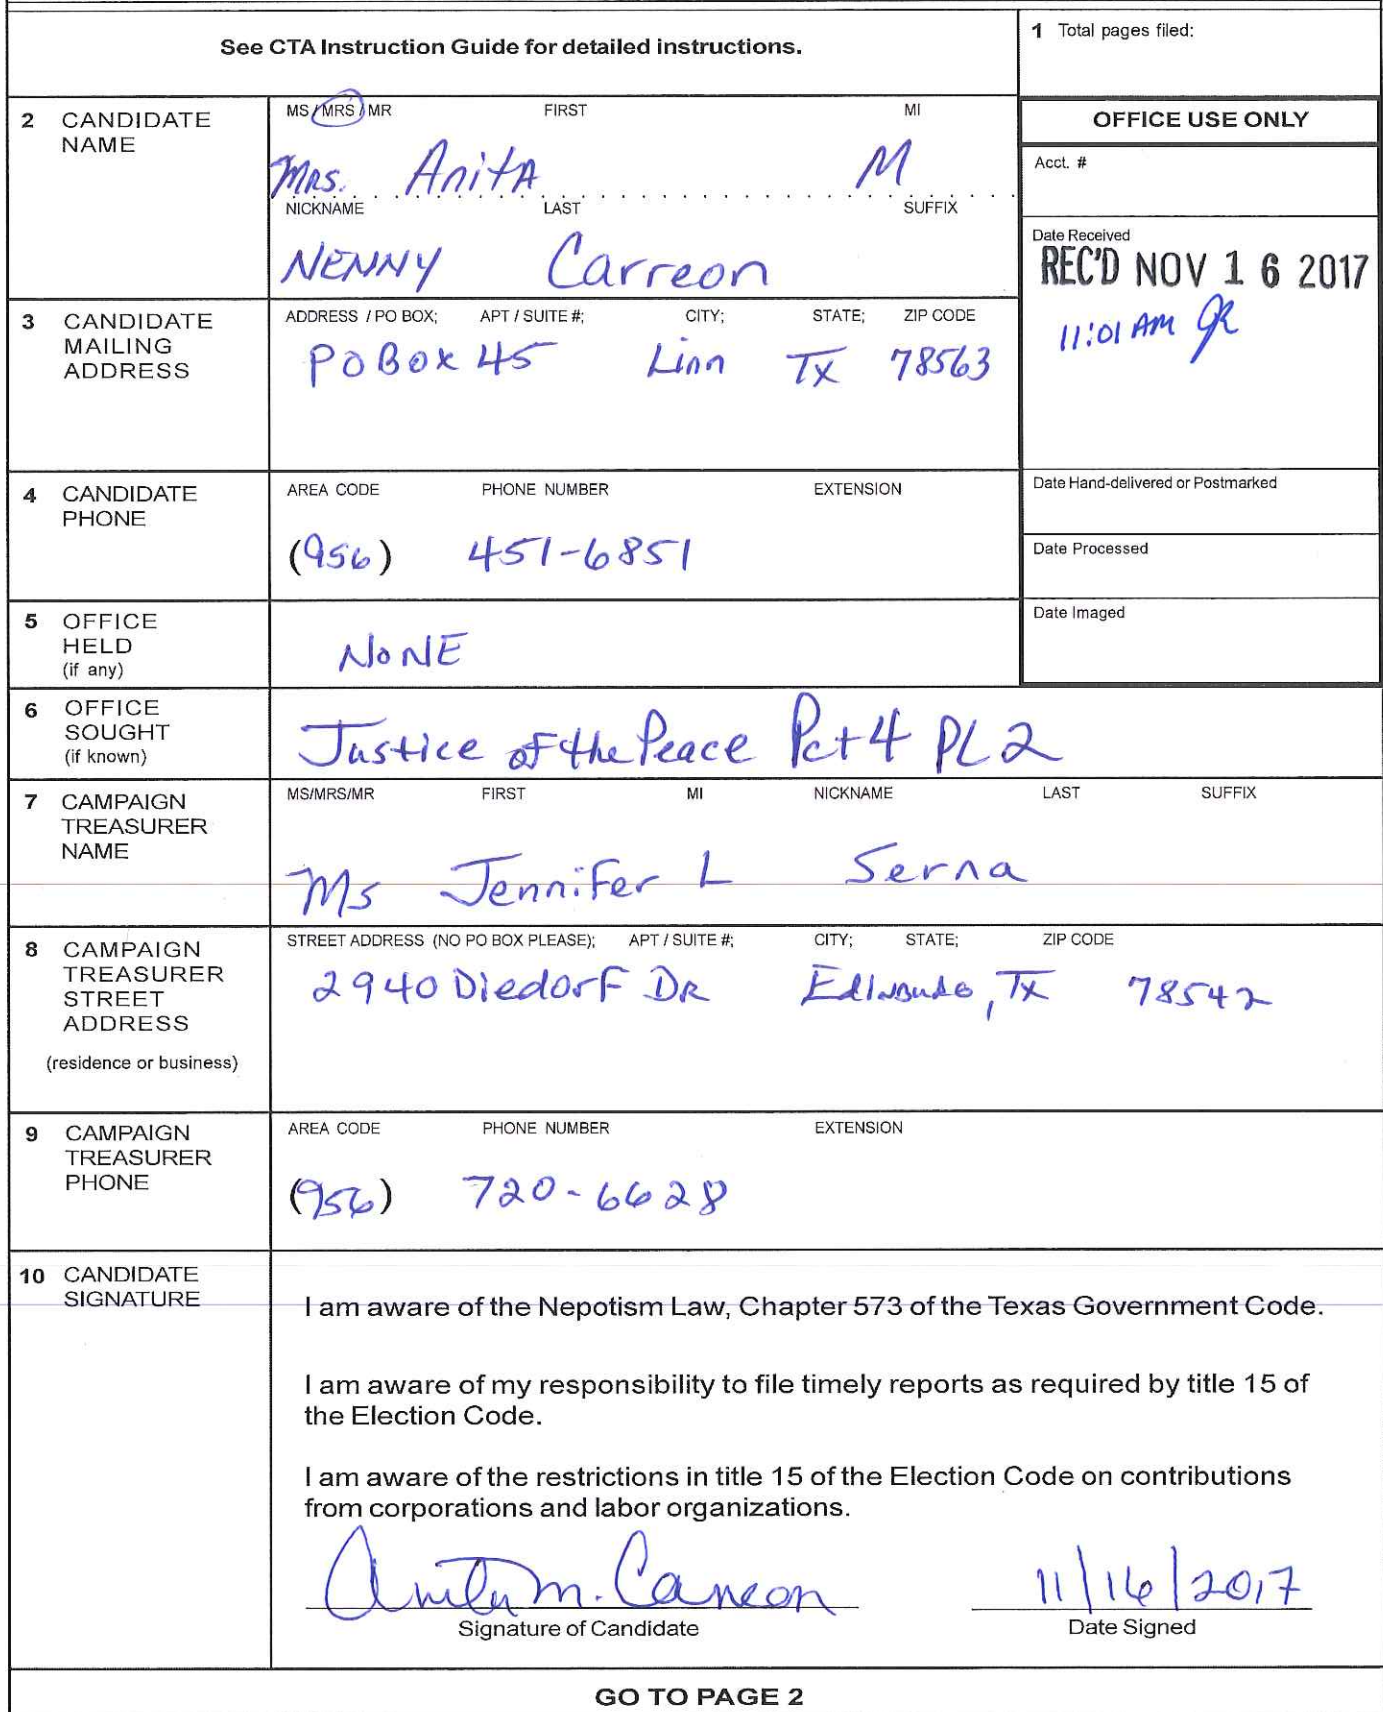 See CTA Instruction Guide for detailed instructions.
1 Total pages filed:
2 CANDIDATE NAME
MS / MRS / MR FIRST MI
Mrs. Anita M
NICKNAME LAST SUFFIX
NENNY Carreon
OFFICE USE ONLY
Acct. #
Date Received
REC'D NOV 16 2017
11:01 AM
3 CANDIDATE MAILING ADDRESS
ADDRESS / PO BOX; APT / SUITE #; CITY; STATE; ZIP CODE
PO Box 45 Linn TX 78563
4 CANDIDATE PHONE
AREA CODE PHONE NUMBER EXTENSION
(956) 451-6851
Date Hand-delivered or Postmarked
Date Processed
Date Imaged
5 OFFICE HELD (if any)
NONE
6 OFFICE SOUGHT (if known)
Justice of the Peace Pct 4 PL 2
7 CAMPAIGN TREASURER NAME
MS/MRS/MR FIRST MI NICKNAME LAST SUFFIX
Ms Jennifer L Serna
8 CAMPAIGN TREASURER STREET ADDRESS
(residence or business)
STREET ADDRESS (NO PO BOX PLEASE); APT / SUITE #; CITY; STATE; ZIP CODE
2940 Diedorf DR Edinburg, TX 78542
9 CAMPAIGN TREASURER PHONE
AREA CODE PHONE NUMBER EXTENSION
(956) 720-6628
10 CANDIDATE SIGNATURE
I am aware of the Nepotism Law, Chapter 573 of the Texas Government Code.
I am aware of my responsibility to file timely reports as required by title 15 of
the Election Code.
I am aware of the restrictions in title 15 of the Election Code on contributions
from corporations and labor organizations.
Anita M. Carreon 11/16/2017
Signature of Candidate Date Signed
GO TO PAGE 2